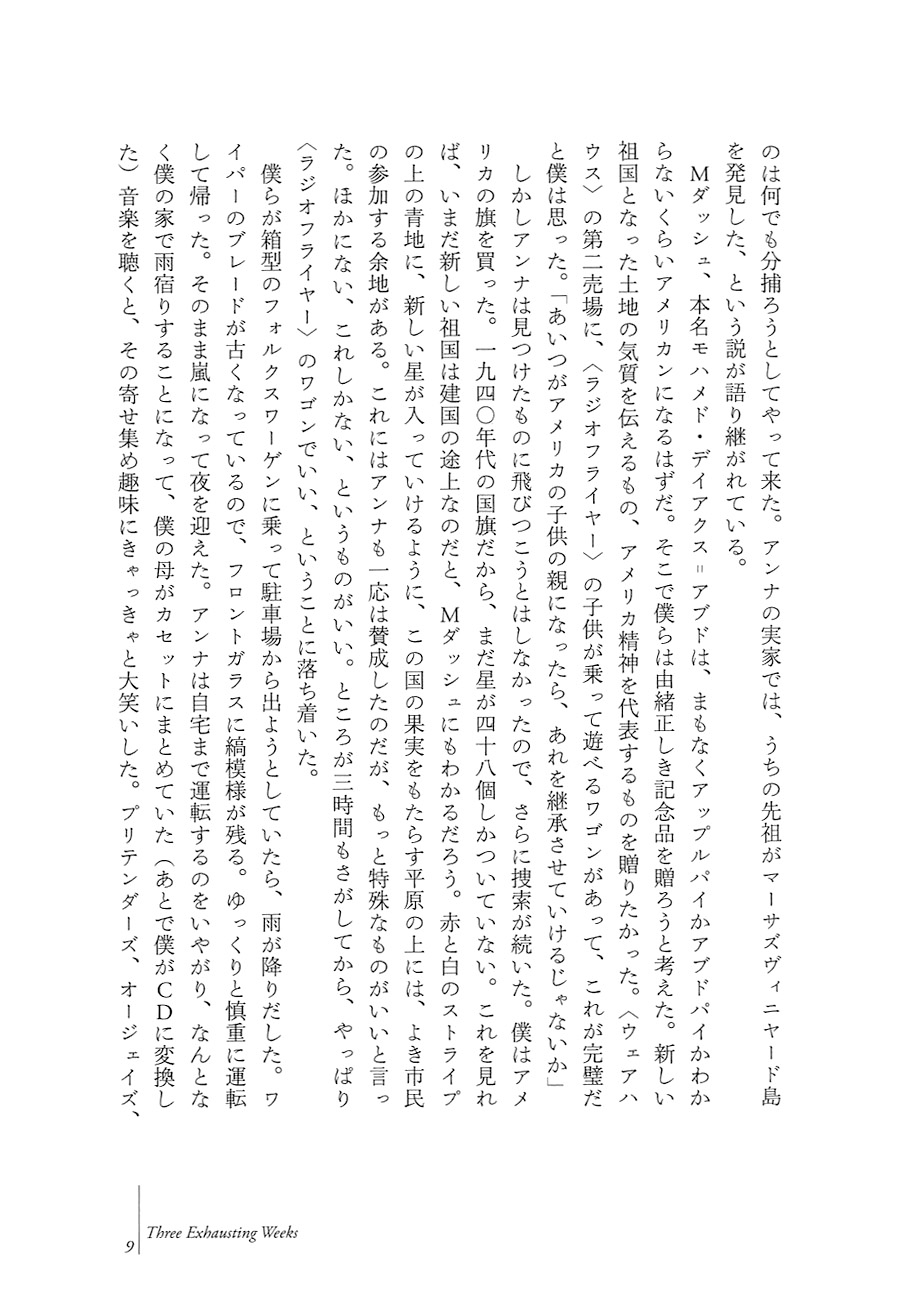 のは何でも分捕ろうとしてやって来た。アンナの実家では、うちの先祖がマーサズヴィニヤード島
を発見した、という説が語り継がれている。
　Mダッシュ、本名モハメド・デイアクス＝アブドは、まもなくアップルパイかアブドパイかわか
らないくらいアメリカンになるはずだ。そこで僕らは由緒正しき記念品を贈ろうと考えた。新しい
祖国となった土地の気質を伝えるもの、アメリカ精神を代表するものを贈りたかった。〈ウェアハ
ウス〉の第二売場に、〈ラジオフライヤー〉の子供が乗って遊べるワゴンがあって、これが完璧だ
と僕は思った。「あいつがアメリカの子供の親になったら、あれを継承させていけるじゃないか」
　しかしアンナは見つけたものに飛びつこうとはしなかったので、さらに捜索が続いた。僕はアメ
リカの旗を買った。一九四〇年代の国旗だから、まだ星が四十八個しかついていない。これを見れ
ば、いまだ新しい祖国は建国の途上なのだと、Mダッシュにもわかるだろう。赤と白のストライプ
の上の青地に、新しい星が入っていけるように、この国の果実をもたらす平原の上には、よき市民
の参加する余地がある。これにはアンナも一応は賛成したのだが、もっと特殊なものがいいと言っ
た。ほかにない、これしかない、というものがいい。ところが三時間もさがしてから、やっぱり
〈ラジオフライヤー〉のワゴンでいい、ということに落ち着いた。
　僕らが箱型のフォルクスワーゲンに乗って駐車場から出ようとしていたら、雨が降りだした。ワ
イパーのブレードが古くなっているので、フロントガラスに縞模様が残る。ゆっくりと慎重に運転
して帰った。そのまま嵐になって夜を迎えた。アンナは自宅まで運転するのをいやがり、なんとな
く僕の家で雨宿りすることになって、僕の母がカセットにまとめていた（あとで僕がCDに変換し
た）音楽を聴くと、その寄せ集め趣味にきゃっきゃと大笑いした。プリテンダーズ、オージェイズ、
Three Exhausting Weeks
9